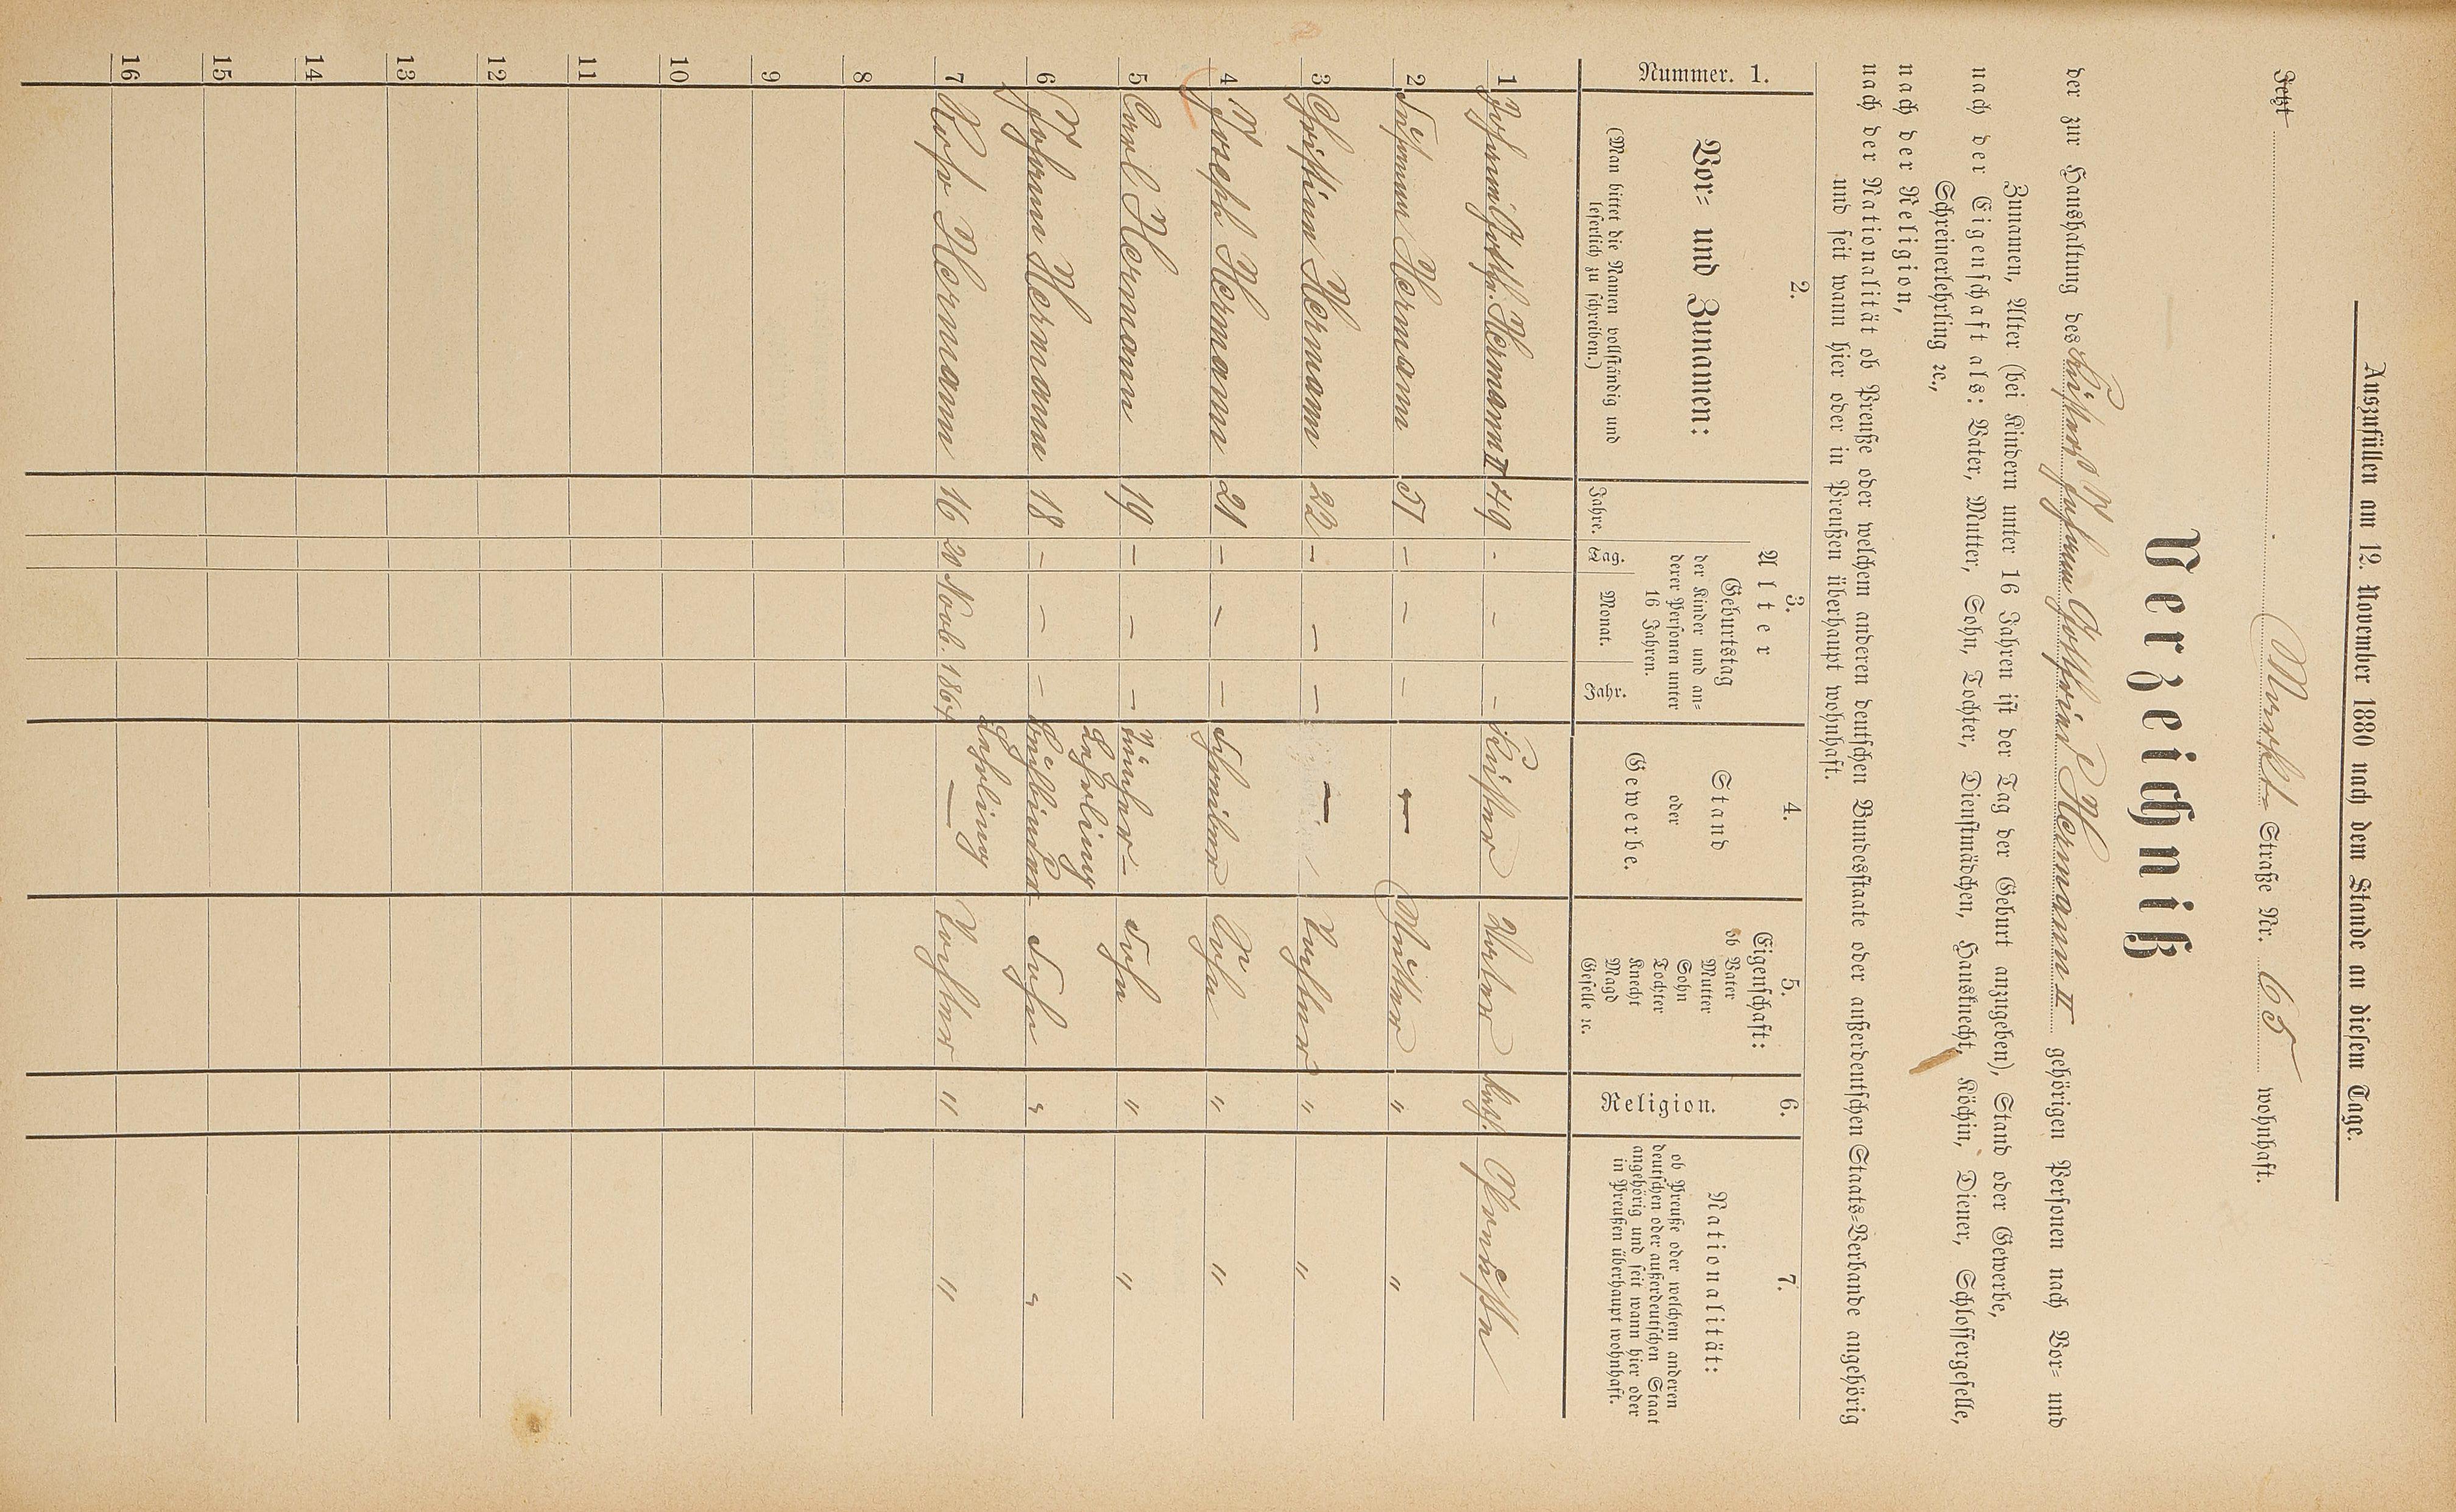 Auszufüllen am 12. November 1880 nach dem Stande an diesem Tage.
Jetzt Markt- Straße Nr. 65 wohnhaft.
Verzeichniß
der zur Haushaltung des Küsters Johann Gottfried Hermann II gehörigen Personen nach Vor- und
Zunamen, Alter (bei Kindern unter 16 Jahren ist der Tag der Geburt anzugeben), Stand oder Gewerbe,
nach der Eigenschaft als: Vater, Mutter, Sohn, Tochter, Dienstmädchen, Hausknecht, Köchin, Diener, Schlossergeselle,
Schreinerlehrling ꝛc.,
nach der Religion,
nach der Nationalität ob Preuße oder welchem anderen deutschen Bundesstaate oder außerdeutschen Staats-Verbande angehörig
und seit wann hier oder in Preußen überhaupt wohnhaft.
Nummer. 1.
2.
Vor- und Zunamen:
(Man bittet die Namen vollständig und
leserlich zu schreiben.)
3.
Alter
Jahre.
Geburtstag
der Kinder und an-
derer Personen unter
16 Jahren.
Tag. Monat. Jahr.
4.
Stand
oder
Gewerbe.
5.
Eigenschaft:
ob Vater
Mutter
Sohn
Tochter
Knecht
Magd
Geselle ꝛc.
6.
Religion.
7.
Nationalität:
ob Preuße oder welchem anderen
deutschen oder außerdeutschen Staat
angehörig und seit wann hier oder
in Preußen überhaupt wohnhaft.
1 Johann Gottfr. Hermann II 49 - - - Küster Vater kath. Preuße
2 Hermann 51 - - - — Mutter " "
3 Christina Hermann 22 - - - — Tochter " "
4 Joseph Hermann 21 - - - Schreiber Sohn " "
5 Carl Hermann 19 - - - Lehrling Sohn " "
6 Johann Hermann 18 - - - Lehrling Sohn " "
7 Rosa Hermann 16 20 Novb. 1864 — Tochter " "
8
9
10
11
12
13
14
15
16